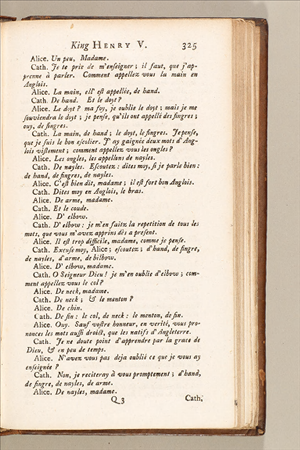 King HENRY V. 325
Alice. Un peu, Madame.
Cath. Je te prie de m'enseigner; il faut, que j'ap-
prenne à parler. Comment appellez vous la main en
Anglois.
Alice. La main, ell' est appellée, de hand.
Cath. De hand. Et le doyt?
Alice. Le doyt? ma foy, je oublie le doyt; mais je me
souviendra le doyt; je pense, qu'ils ont appellé des fingres;
ouy, de fingres.
Cath. La main, de hand; le doyt, le fingres. Je pense,
que je suis le bon escolier. J'ay gaignée deux mots d'Ang-
lois vistement; comment appellez vous les ongles?
Alice. Les ongles, les appellons de nayles.
Cath. De nayles. Escoutez: dites moy, si je parle bien:
de hand, de fingres, de nayles.
Alice. C'est bien dit, madame; il est fort bon Anglois.
Cath. Dites moy en Anglois, le bras.
Alice. De arme, madame.
Cath. Et le coude.
Alice. D' elbow.
Cath. D' elbow: je m'en faitz la repetition de tous les
mots, que vous m'avez apprins dès a present.
Alice. Il est trop difficile, madame, comme je pense.
Cath. Excuse moy, Alice; escoutez; d'hand, de fingre,
de nayles, d'arme, de bilbow.
Alice. D' elbow, madame.
Cath. O Seigneur Dieu! je m'en oublie d'elbow; com-
ment appellez vous le col?
Alice. De neck, madame.
Cath. De neck; & le menton?
Alice. De chin.
Cath. De sin: le col, de neck: le menton, de sin.
Alice. Ouy. Sauf vostre honneur, en verité, vous pro-
nonces les mots aussi droict, que les natifs d'Angleterre.
Cath. Je ne doute point d'apprendre par la grace de
Dieu, & en peu de temps.
Alice. N'aven vous pas deja oublié ce que je vous ay
enseignée?
Cath. Non, je reciteray à vous promptement; d'hand,
de fingre, de nayles, de arme.
Alice. De nayles, madame.
Q 3 Cath.